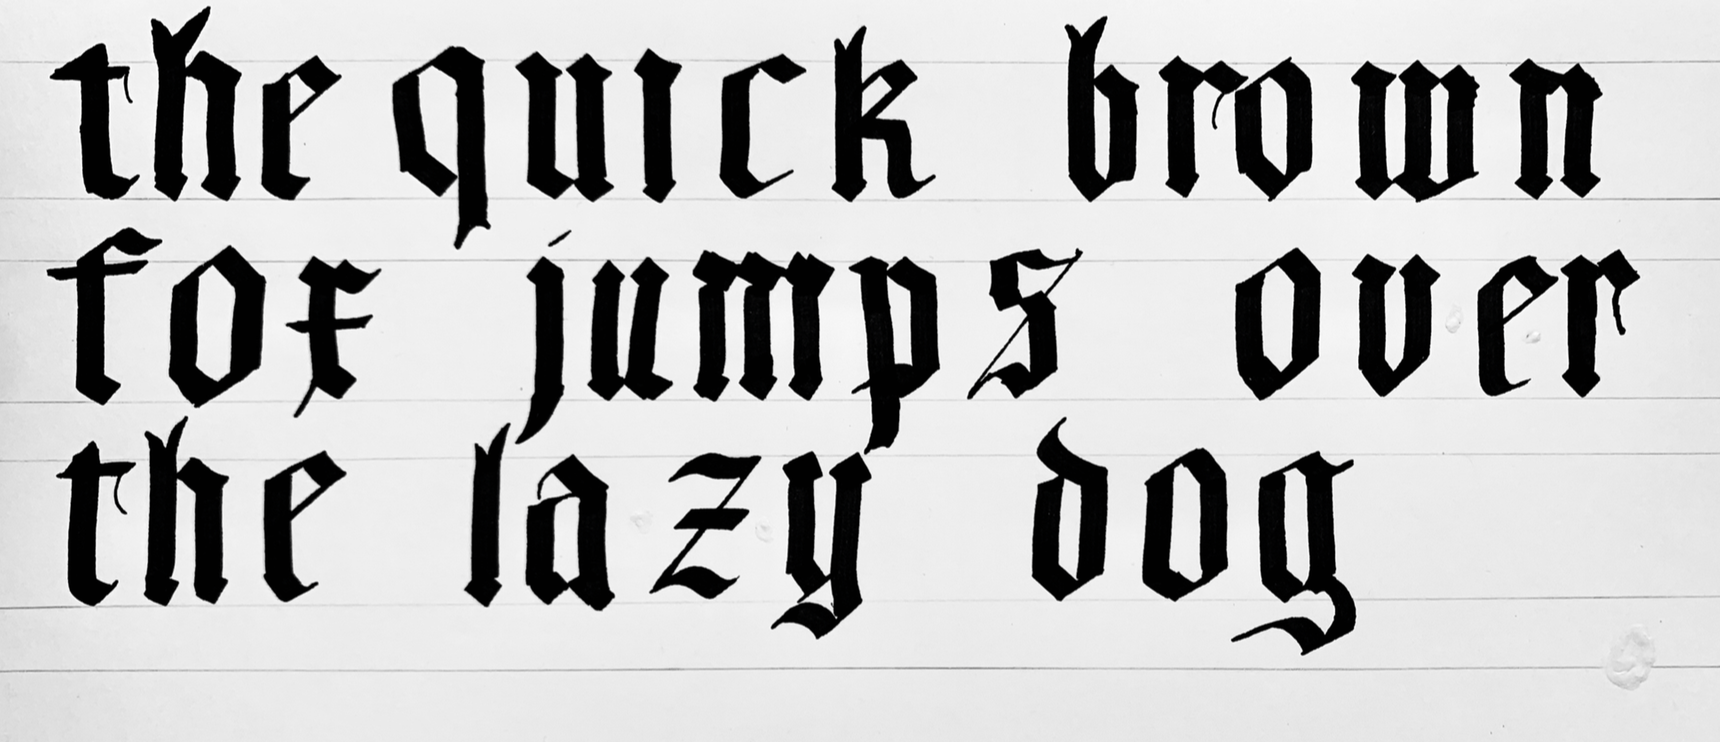 the quick brown
fox jumps over
the lazy dog